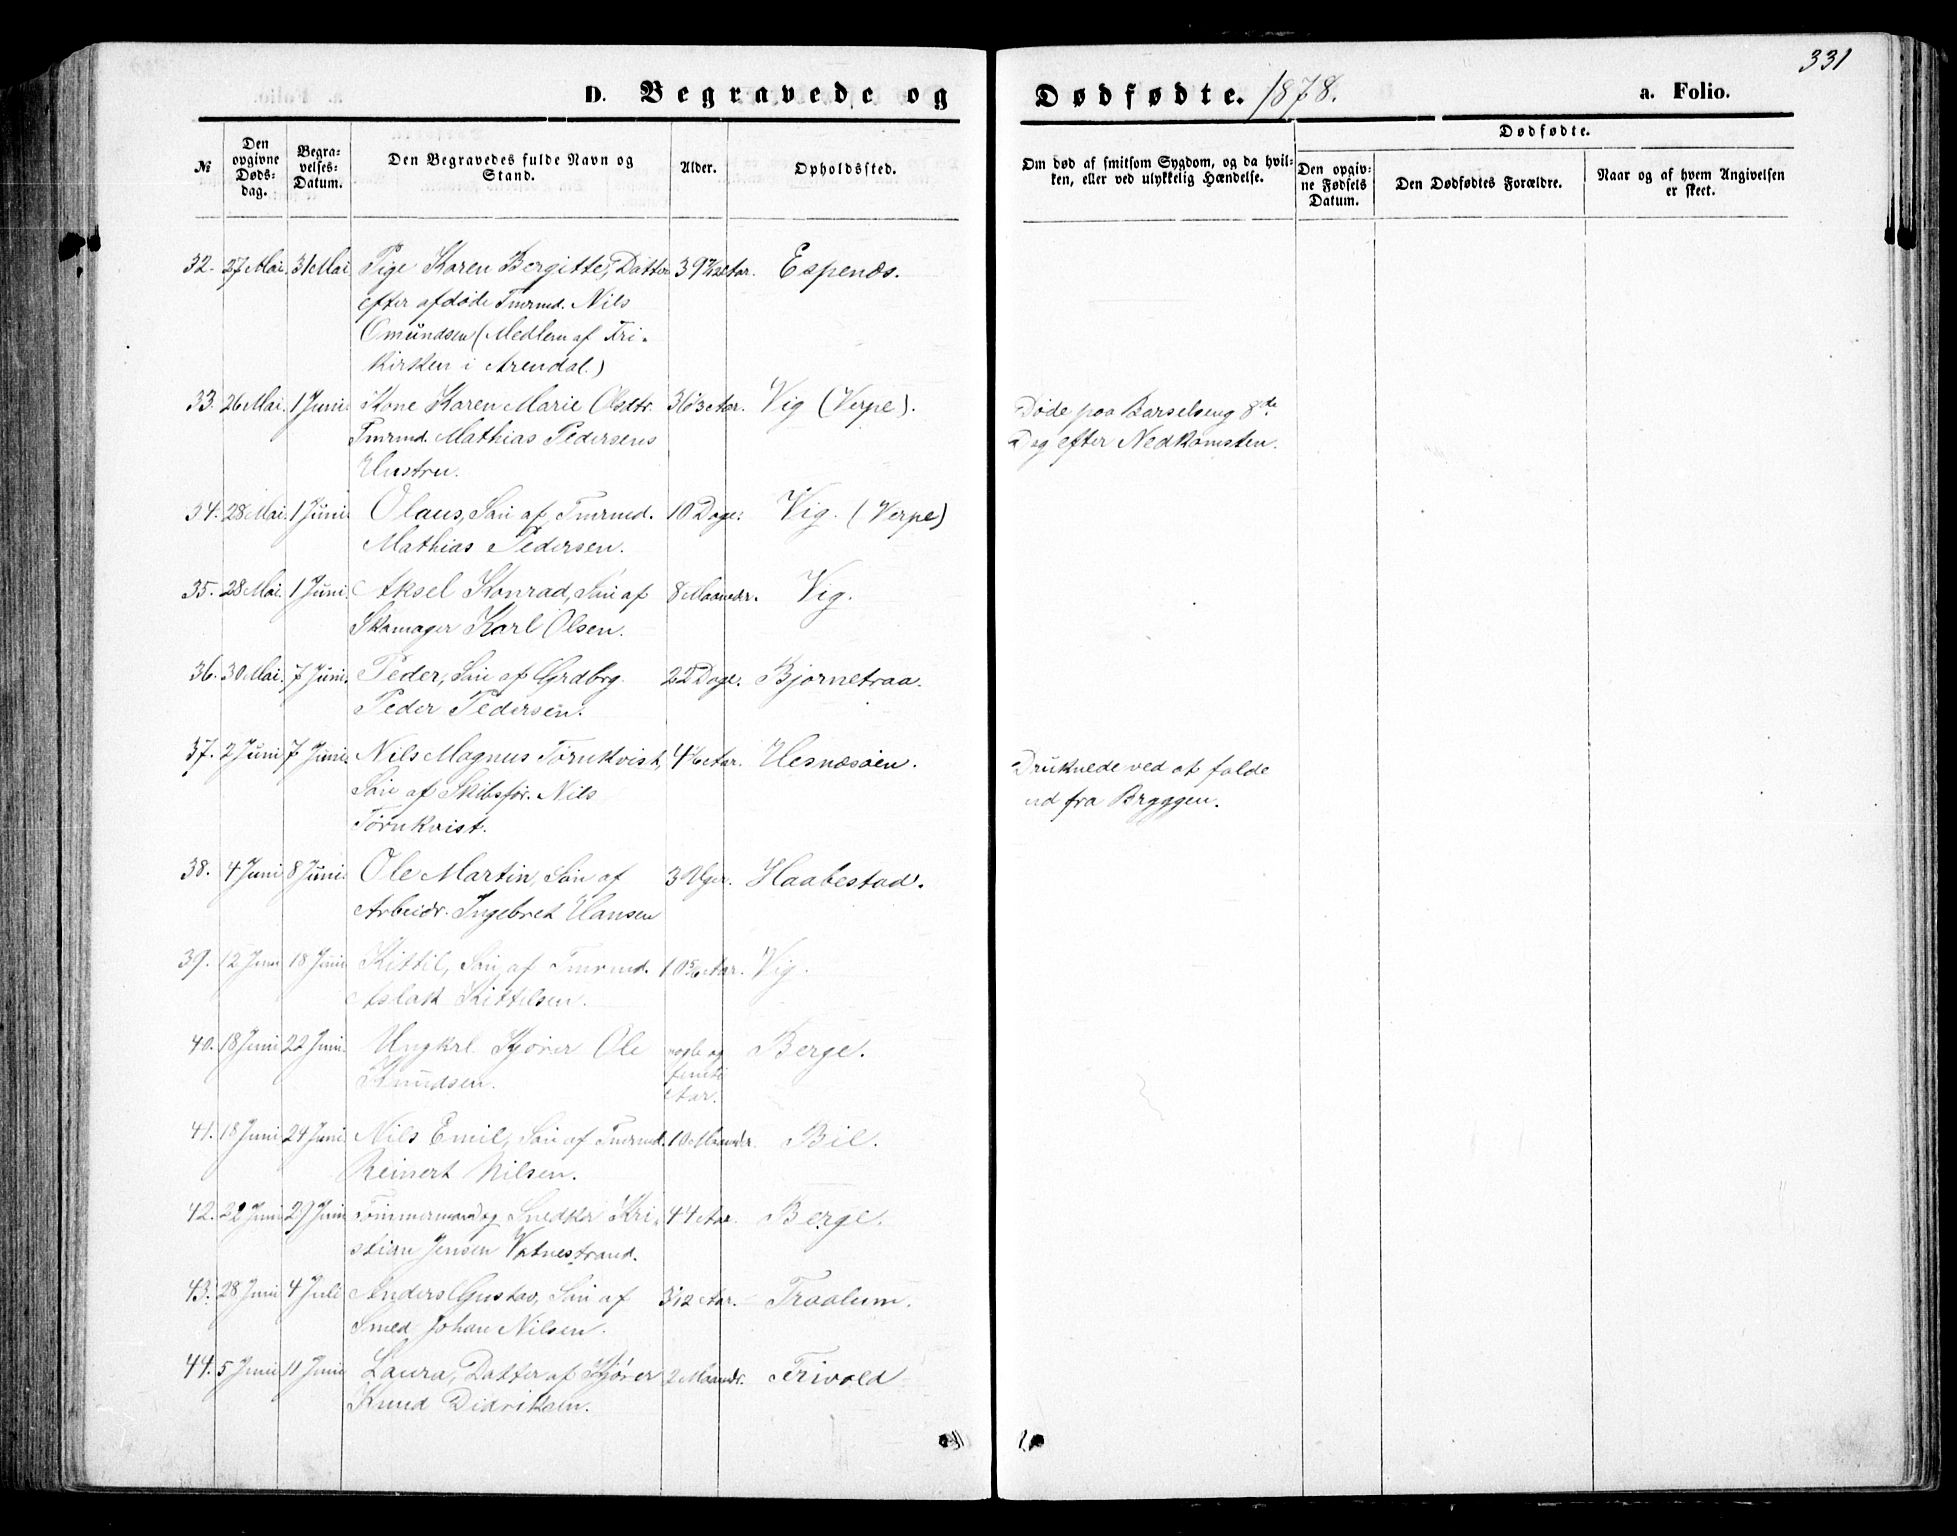 331
D. Begravede og
Dødfødte. 1878.
a. Folio.
№
Den opgivne Døds-dag.
Begra-velses-Datum.
Den Begravedes fulde Navn og Stand.
Alder.
Opholdssted.
Om død af smitsom Sygdom, og da hvil-ken, eller ved ulykkelig Hændelse.
Dødfødte.
Den opgiv-ne Fødsels Datum.
Den Dødfødtes Forældre.
Naar og af hvem Angivelsen er skeet.
32. 27 Mai. 31 Mai Pige Karen Bergitte, Datter 39 Aar. Espenæs.
efter afdøde Tmrmd. Nils
Omundsen (Medlem af Fri-
kirken i Arendal.)
33. 26 Mai. 1 Juni. Kone Karen Marie Olsdtr. 36 Aar. Vig (Verpe). Døde paa Barselseng 8de
Tmrmd. Mathias Pedersens Dag efter Nedkomsten.
Hustru.
34. 28 Mai. 1 Juni. Olaus, Søn af Tmrmd. 10 Dage. Vig. (Verpe)
Mathias Pedersen.
35. 28 Mai. 1 Juni. Aksel Konrad, Søn af 8 Maanedr. Vig.
Skomager Karl Olsen.
36. 30 Mai. 7 Juni. Peder, Søn af Grdbrg. 22 Dage. Bjørnetraa.
Peder Pedersen.
37. 2 Juni 7 Juni. Nils Magnus Tørnkvist, 4 1/6 Aar. Hesnæsøen. Druknede ved at falde
Søn af Skibsfør. Nils ud fra Bryggen.
Tørnkvist.
38. 4 Juni 8 Juni. Ole Martin, Søn af 3 Uger. Haabestad.
Arbeidr. Ingebret Hansen
39. 12 Juni 18 Juni Kittil, Søn af Tmrmd. 10 5/6 Aar. Vig.
Aslak Kittilsen.
40. 18 Juni 22 Juni. Ungkrl Kjører Ole nogle og Berge.
Knudsen. femti
Aar.
41. 18 Juni 24 Juni. Nils Emil, Søn af Tmrmd. 10 Maanedr. Bil.
Reinert Nilsen.
42. 22 Juni 29 Juni Tømmermand og Snedkr Kri- 44 Aar. Berge.
stian Jensen Vatnestrand.
43. 28 Juni 4 Juli Anders Gustav, Søn af 3 1/12 Aar. Traalum.
Smed Johan Nilsen.
44. 5 Juni 11 Juni Laura, Datter af Kjører 2 Maanedr. Trivold
Knud Didriksen.